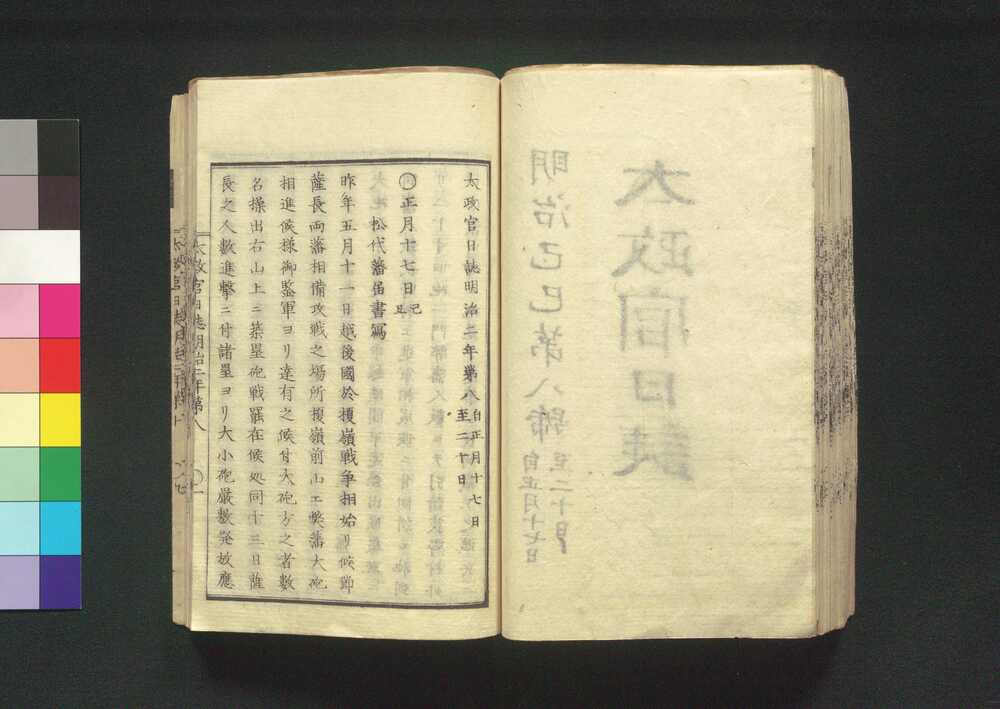 太政官日誌
明治己巳第八號
自正月十七日
至二十日
太政官日誌明治二年第八
自正月十七日
至二十日
○正月十七日己丑
松代藩届書寫
昨年五月十一日越後國於榎嶺戰争相始リ候節
薩長両藩相備攻戰之場所榎嶺前山エ弊藩大砲
相進候様御監軍ヨリ達有之候付大砲方之者数
名操出右山上ニ築塁砲戰罷在候処同十三日薩
長之人数進撃ニ付諸塁ヨリ大小砲厳敷発放應
太政官日誌明治二年第八